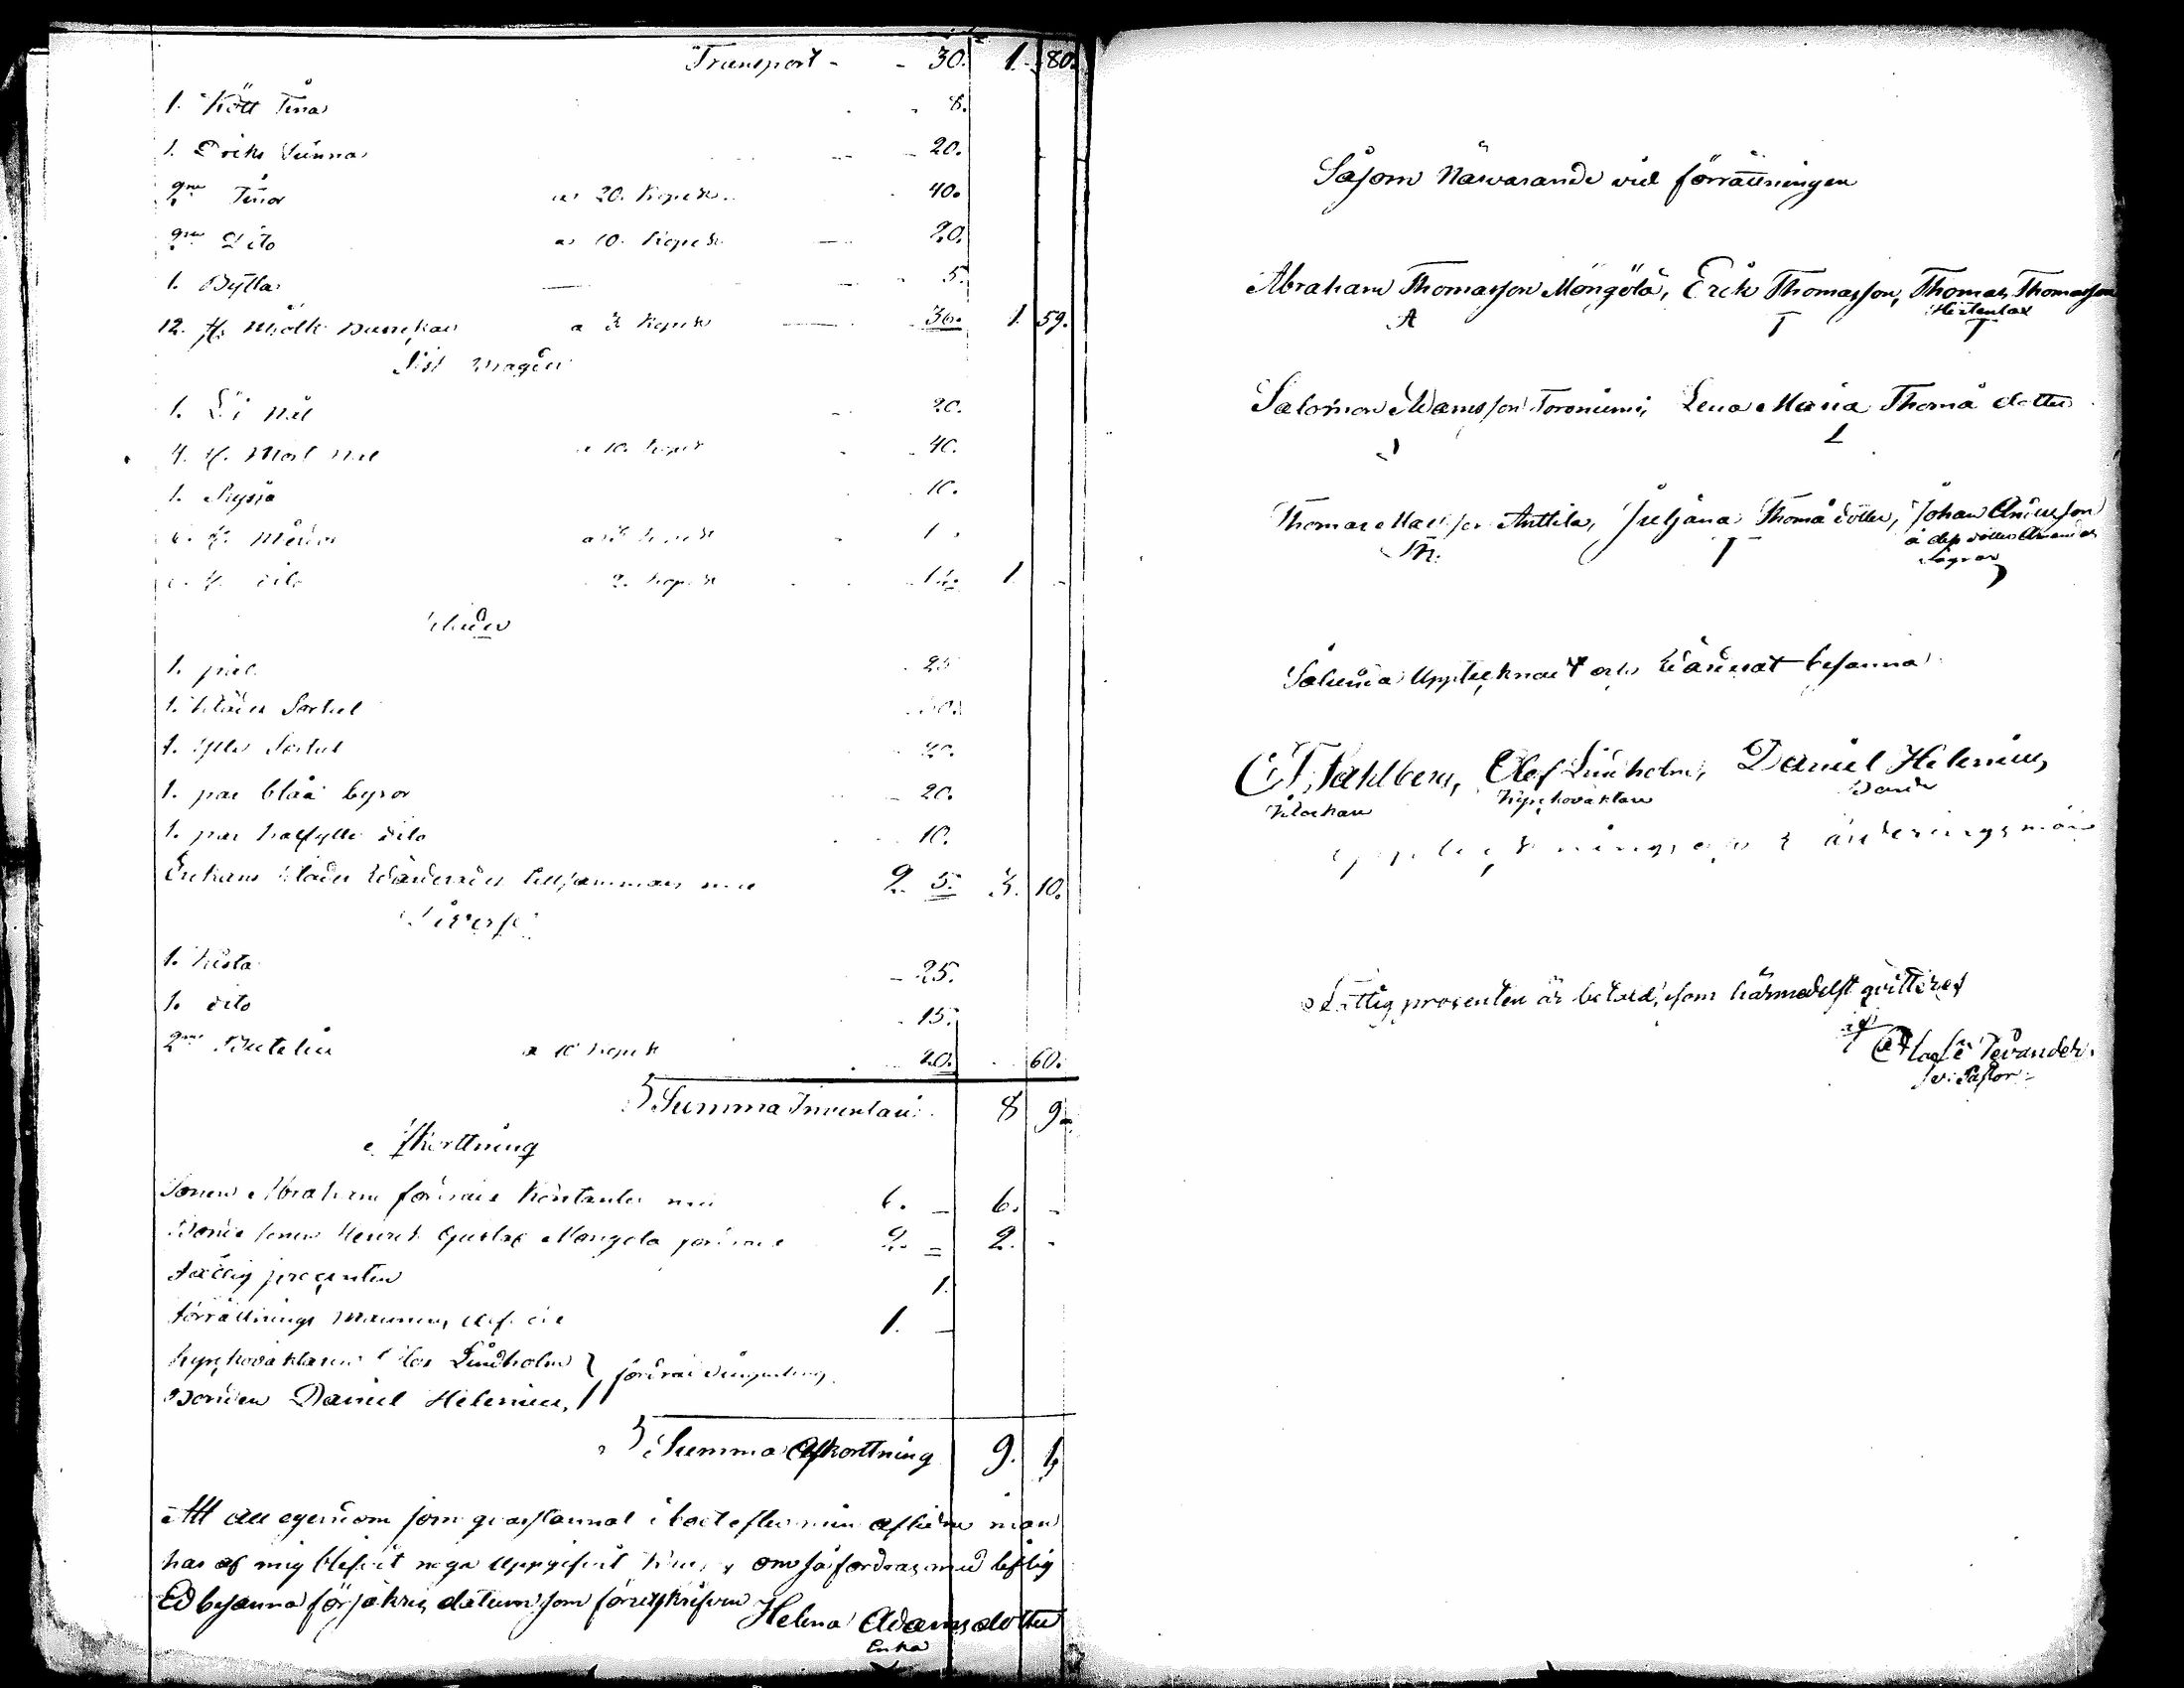 Transport - - 30. 1. 80.
1. Kött Tina 8.
1. Dricks Tunna 20.
2ne Tinor a 20. Kopek 40.
2ne Dito a 10. Kopek 20.
1. Bytta 5.
12. st. Miölk Bunckar a 3 Kopek 36. 1. 59.
Fisk
1. Nät 20.
4. st. a 10. Kopek 40.
1. Ryssja 10.
6. st. Merdor
st. dito 2. Kopek 12. 1. -
Kläder
1. päls 25
1. Klädes Sortut
1. Ylle Sortut 20.
1. par blåa byxor 20.
1. par halfylle dito 10.
Enkans kläder Wärderades tillsammans med 2. 5. 3. 10.
Diverse
1. Kista 25.
1. dito 15.
2ne Buteljer a 10 Kopek 20. 60.
Summa Inventari. 8 9
Afkorttning
Sonen Abraham fordrar Kontanter med 6. - 6. -
Bonde sonen Henrik Gustaf Mongola fordrar 2. = 2. -
Fattig procenten 1.
Förrättnings Mannen 1. -
Kyrkovaktaren Olof Lindholm
Bonden Daniel Helenius, fordrar ingenting
Summa Afkorttning 9. 1,
Att all egendom som qvarstannat i boet efter min aflidne man
har af mig blifvit noga uppgifvit Kan, om så fordras, med liflig
Ed besanna försäkras, datum som föreskrifven
Helena Adamsdotter
Enka
Såsom Närvarande vid förrättningen
Abraham Thomasson Möngölä, Erik Thomasson, Thomas Thomasson
Hertenlax
A T T
Salomon Adamsson Toroniemi, Lena Maria Thomä dotter
L
Thomas Mattsson Anttila, Juljana Thomä dotter, Johan Andersson
å dess dotter Amandas
vägnar
T
Sålunda Upptecknat och Wärderat besanna
C. T. Stahlberg, Olof Lindholm, Daniel Helenius,
Klockare Kyrckovaktare Bonde
upptecknings och wärderingsmän
Fattig procenten är betald, som härmedelst qvitteras
Tevander.
v: Pastor.